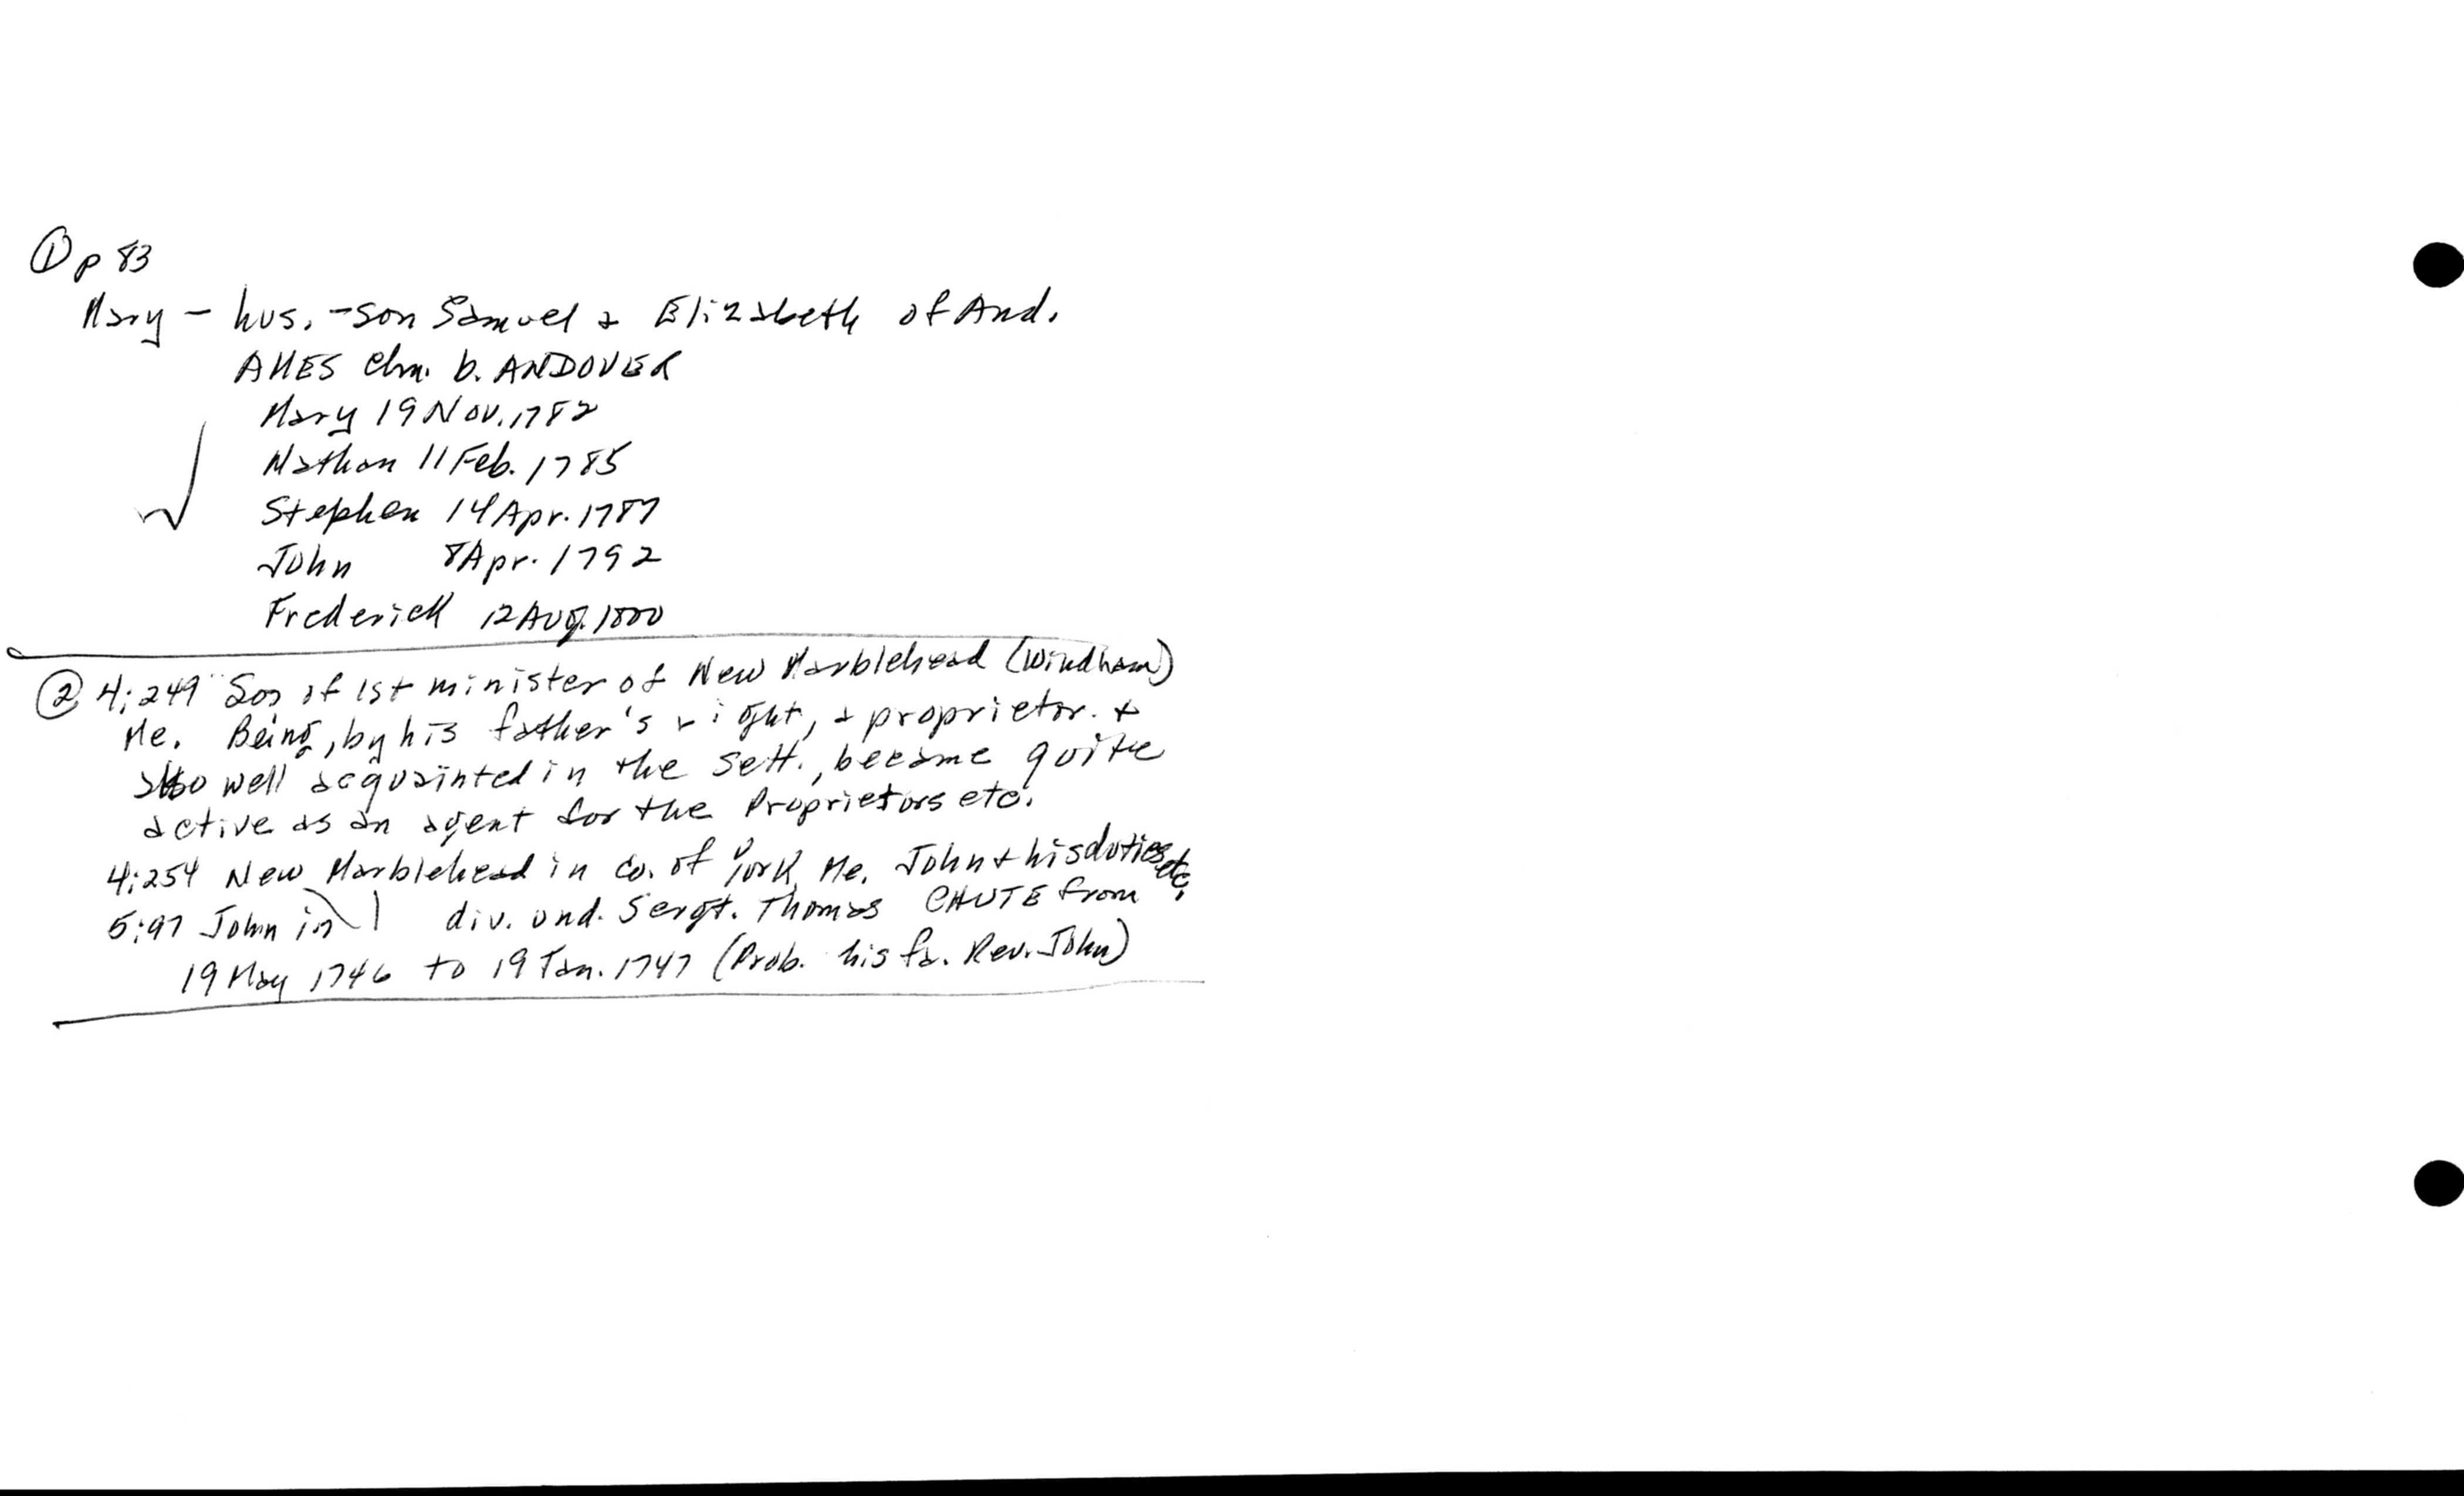 ① p 83
Mary - hus. - son Samuel & Elizabeth of And.
AMES chn. b. ANDOVER
Mary 19 Nov. 1782
Nathan 11 Feb. 1785
Stephen 14 Apr. 1787
John 8 Apr. 1792
Frederick 12 Aug. 1800
② 4:249 Son of 1st minister of New Marblehead (Windham)
Me. Being, by his father's right, a proprietor. &
also well acquainted in the sett., became quite
active as an agent for the Proprietors etc.
4:254 New Marblehead in Co. of York, Me. John & his duties etc.
5:97 John in div. und. Sergt. Thomas CHUTE from
19 May 1746 to 19 Jan. 1747 (Prob. his fa. Rev. John)